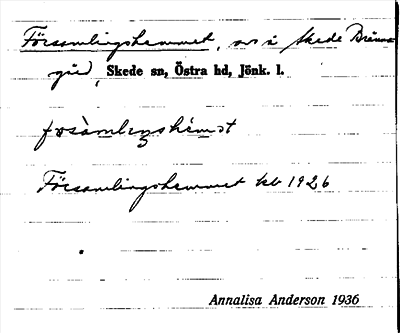 Församlingshemmet, avs i Skede Bränna-
gård, Skede sn, Östra hd, Jönk. l.
fosàmlıŋshémət
Församlingshemmet kb 1926
Annalisa Anderson 1936